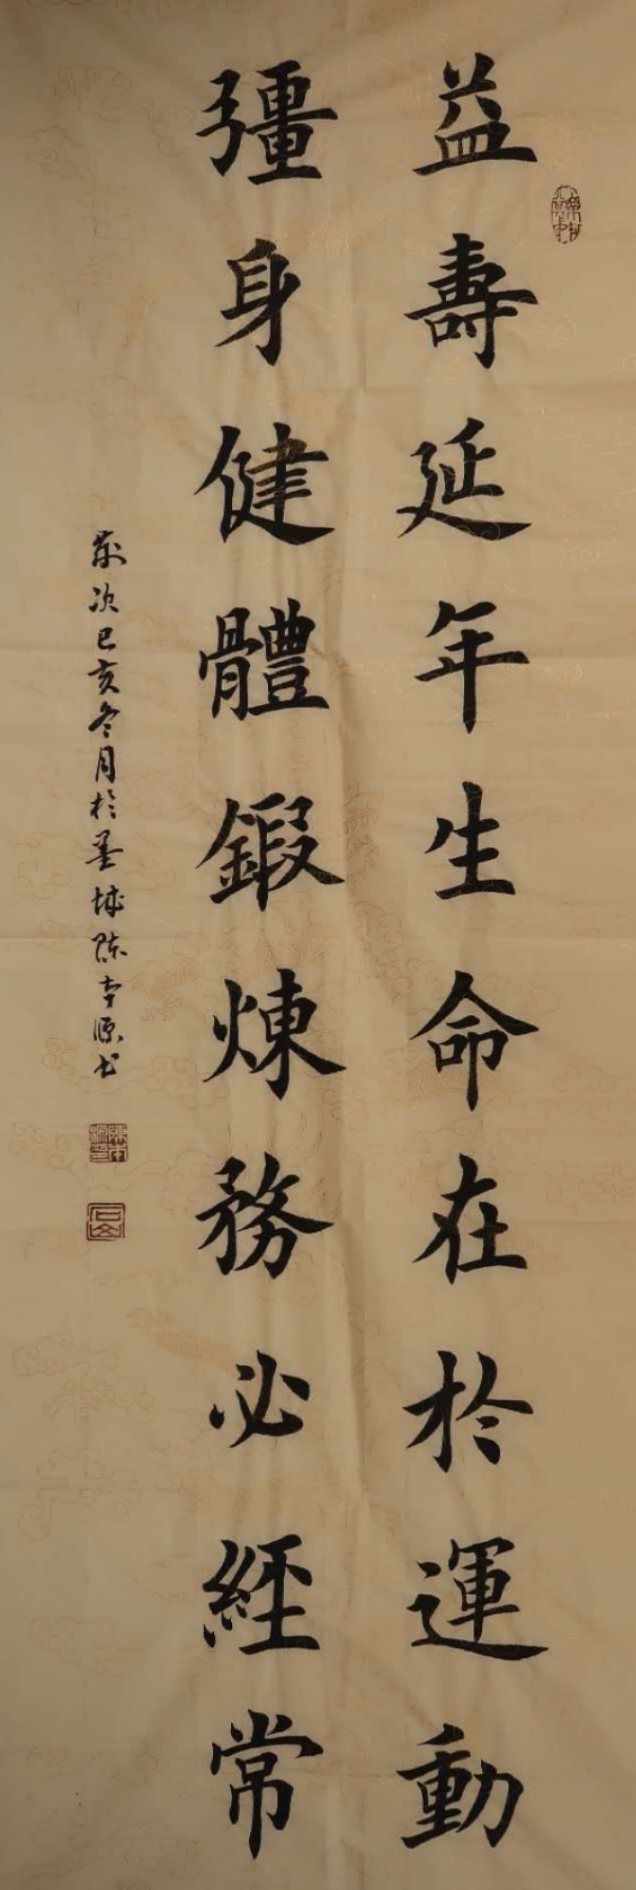 益壽延年生命在於運動
彊身健體鍛煉務必經常
歲次己亥冬月於墨城陈書源书